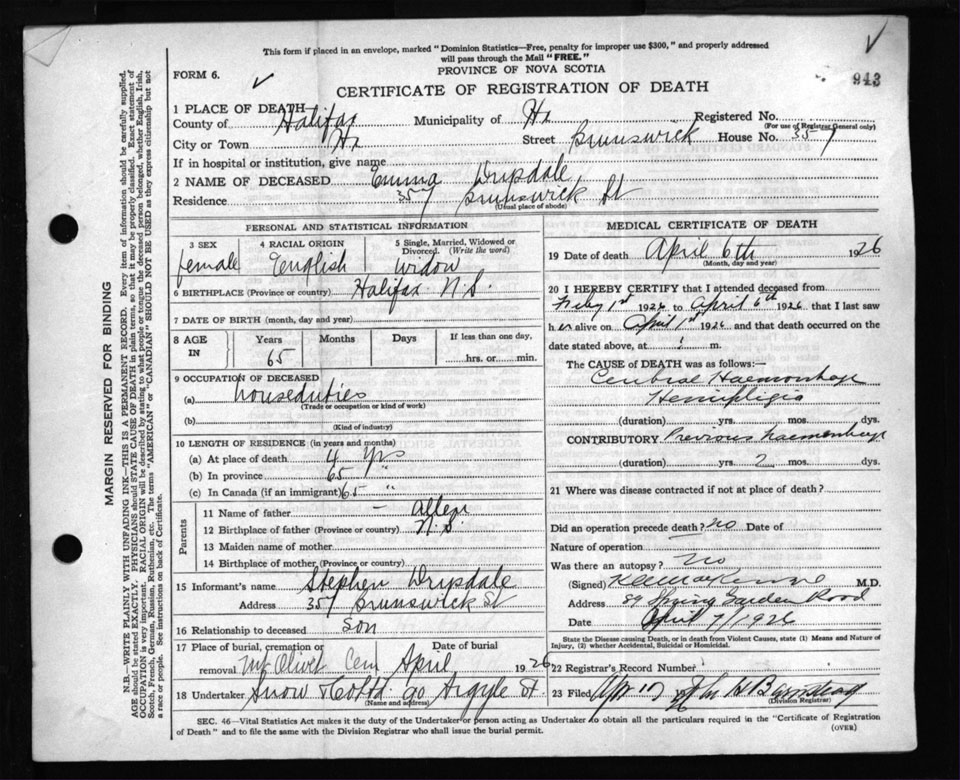 This form if placed in an envelope, marked "Dominion Statistics—Free, penalty for improper use $300," and properly addressed
will pass through the Mail "FREE."
943
PROVINCE OF NOVA SCOTIA
FORM 6.
CERTIFICATE OF REGISTRATION OF DEATH
1 PLACE OF DEATH
County of Halifax Municipality of Hx Registered No.
(For use of Registrar General only)
City or Town Hx Street Brunswick House No. 357
If in hospital or institution, give name
2 NAME OF DECEASED Emma Drysdale
Residence 357 Brunswick St
(Usual place of abode)
PERSONAL AND STATISTICAL INFORMATION
3 SEX 4 RACIAL ORIGIN 5 Single, Married, Widowed or Divorced. (Write the word)
female English Widow
6 BIRTHPLACE (Province or country) Halifax N.S.
7 DATE OF BIRTH (month, day and year)
8 AGE IN Years Months Days If less than one day,
65 hrs. or min.
9 OCCUPATION OF DECEASED
(a) houseduties
(Trade or occupation or kind of work)
(b)
(Kind of industry)
10 LENGTH OF RESIDENCE (in years and months)
(a) At place of death 4 yrs
(b) In province 65 "
(c) In Canada (if an immigrant) 65 "
Parents
11 Name of father – Allen
12 Birthplace of father (Province or country) N.S.
13 Maiden name of mother
14 Birthplace of mother (Province or country)
15 Informant's name Stephen Drysdale
Address 357 Brunswick St
16 Relationship to deceased Son
17 Place of burial, cremation or removal Date of burial
Mt Olivet Cem April 1926
18 Undertaker Snow & Co Ltd 90 Argyle St.
(Name and address)
MEDICAL CERTIFICATE OF DEATH
19 Date of death April 6th 1926
(Month, day and year)
20 I HEREBY CERTIFY that I attended deceased from
Feby 1st 1926 to April 6th 1926 that I last saw
her alive on April 1st 1926 and that death occurred on the
date stated above, at m.
The CAUSE OF DEATH was as follows:—
Cerebral Haemorrhage
Hemiplegia
(duration) yrs. mos. dys.
CONTRIBUTORY Previous haemorrhage
(duration) yrs. 2 mos. dys.
21 Where was disease contracted if not at place of death?
Did an operation precede death? no Date of
Nature of operation
Was there an autopsy? no
(Signed) M.D.
Address 89 Spring Garden Road
Date April 7/1926
State the Disease causing Death, or in death from Violent Causes, state (1) Means and Nature of
Injury, (2) whether Accidental, Suicidal or Homicidal.
22 Registrar's Record Number
23 Filed Apr 17
(Division Registrar)
SEC. 46—Vital Statistics Act makes it the duty of the Undertaker or person acting as Undertaker to obtain all the particulars required in the "Certificate of Registration
of Death" and to file the same with the Division Registrar who shall issue the burial permit.
(OVER)
MARGIN RESERVED FOR BINDING
N.B.—WRITE PLAINLY WITH UNFADING INK—THIS IS A PERMANENT RECORD. Every item of information should be carefully supplied.
AGE should be stated EXACTLY. PHYSICIANS should STATE CAUSE OF DEATH in plain terms, so that it may be properly classified. Exact statement of
OCCUPATION is very important. RACIAL ORIGIN will be described by stating to what people or tongue the deceased person belonged, whether English, Irish,
Scotch, French, German, Russian, Ruthenian, etc. The terms "AMERICAN" or "CANADIAN" SHOULD NOT BE USED as they express citizenship but not
a race or people. See instructions on back of Certificate.